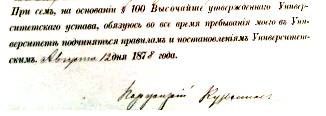 При семъ, на основаніи § 100 Высочайше утвержденнаго Универ-
ситетскаго устава, обязуюсь во все время пребыванія моего въ Уни-
верситетѣ подчиняться правиламъ и постановленіямъ Университет-
скимъ. Августа 12 дня 1878 года.